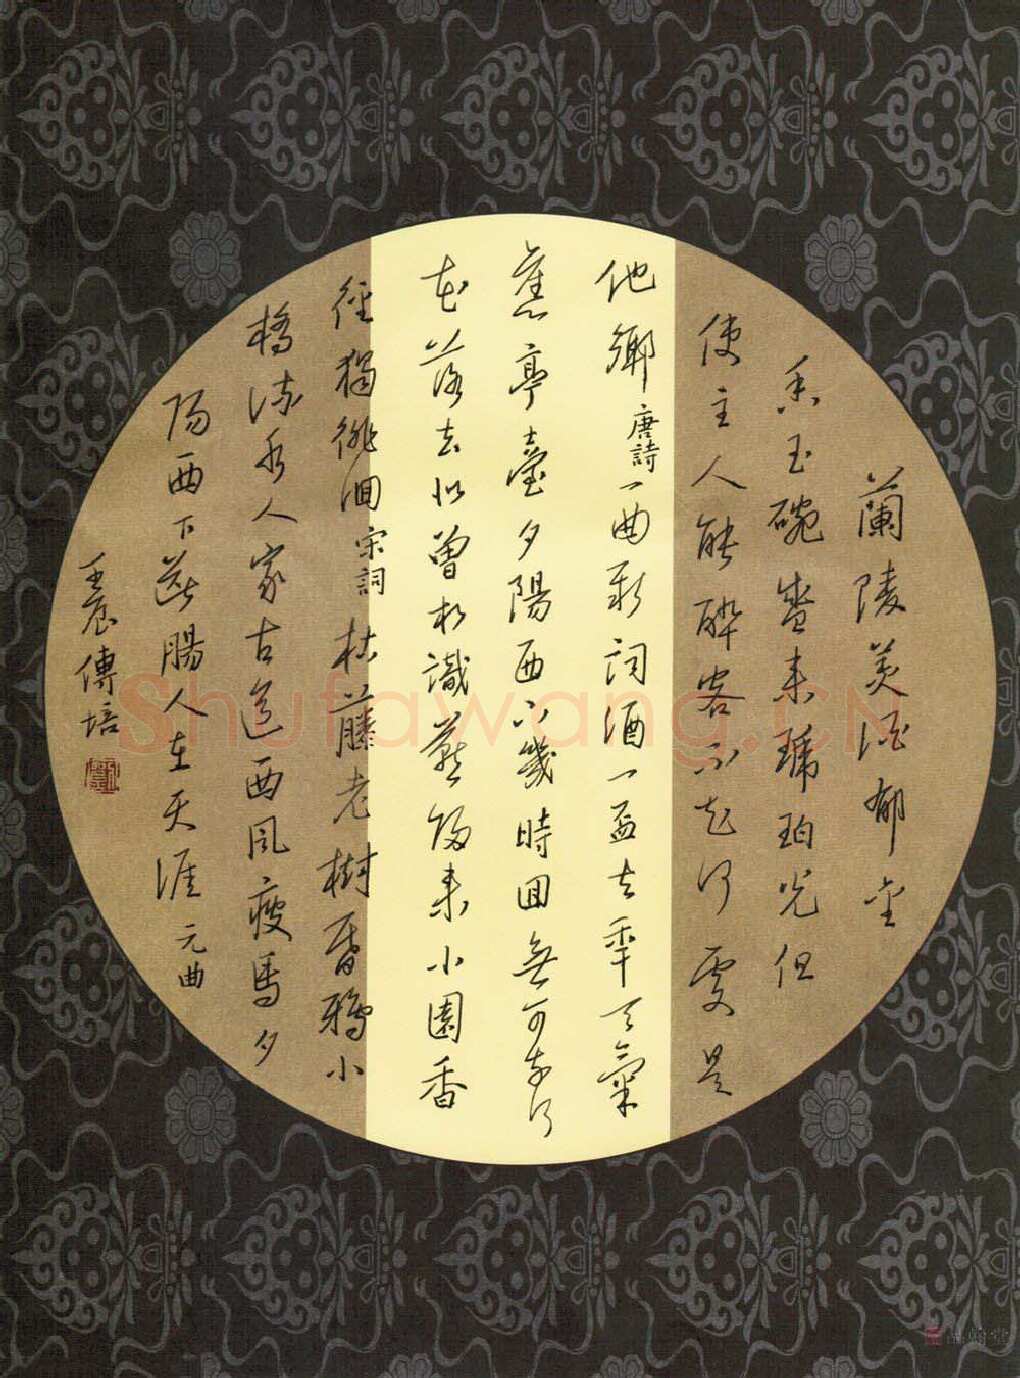 蘭陵美酒郁金
香玉碗盛来琥珀光但
使主人能醉客不知何處是
他鄉 唐詩 一曲新詞酒一盃去年天氣
舊亭臺夕陽西下幾時回無可奈何
花落去似曾相識燕歸來小園香
徑獨徘徊 宋詞 枯藤老樹昏鴉小
橋流水人家古道西風瘦馬夕
陽西下斷腸人在天涯 元曲
壬辰傳培
Shufawang.CN